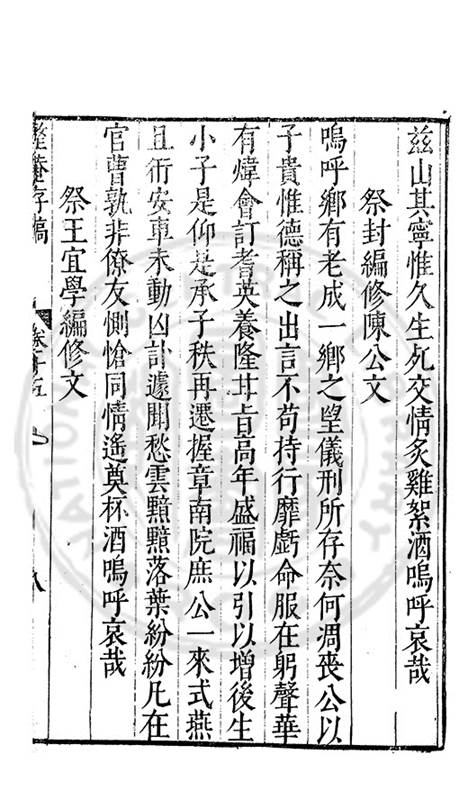 茲山其寧惟久生死交情炙雞絮酒嗚呼哀哉
祭封編修陳公文
嗚呼鄉有老成一鄉之望儀刑所存奈何凋喪公以
子貴惟德稱之出言不苟持行靡虧命服在躬聲華
有煒會訂耆英養隆甘旨高年盛福以引以增後生
小子是仰是承子秩再遷握章南院庶公一來式燕
且衎安車未動凶訃遽聞愁雲黯黯落葉紛紛凡在
官曹孰非僚友惻愴同情遙奠杯酒嗚呼哀哉
祭王宜學編修文
整菴存稿 卷十五 八